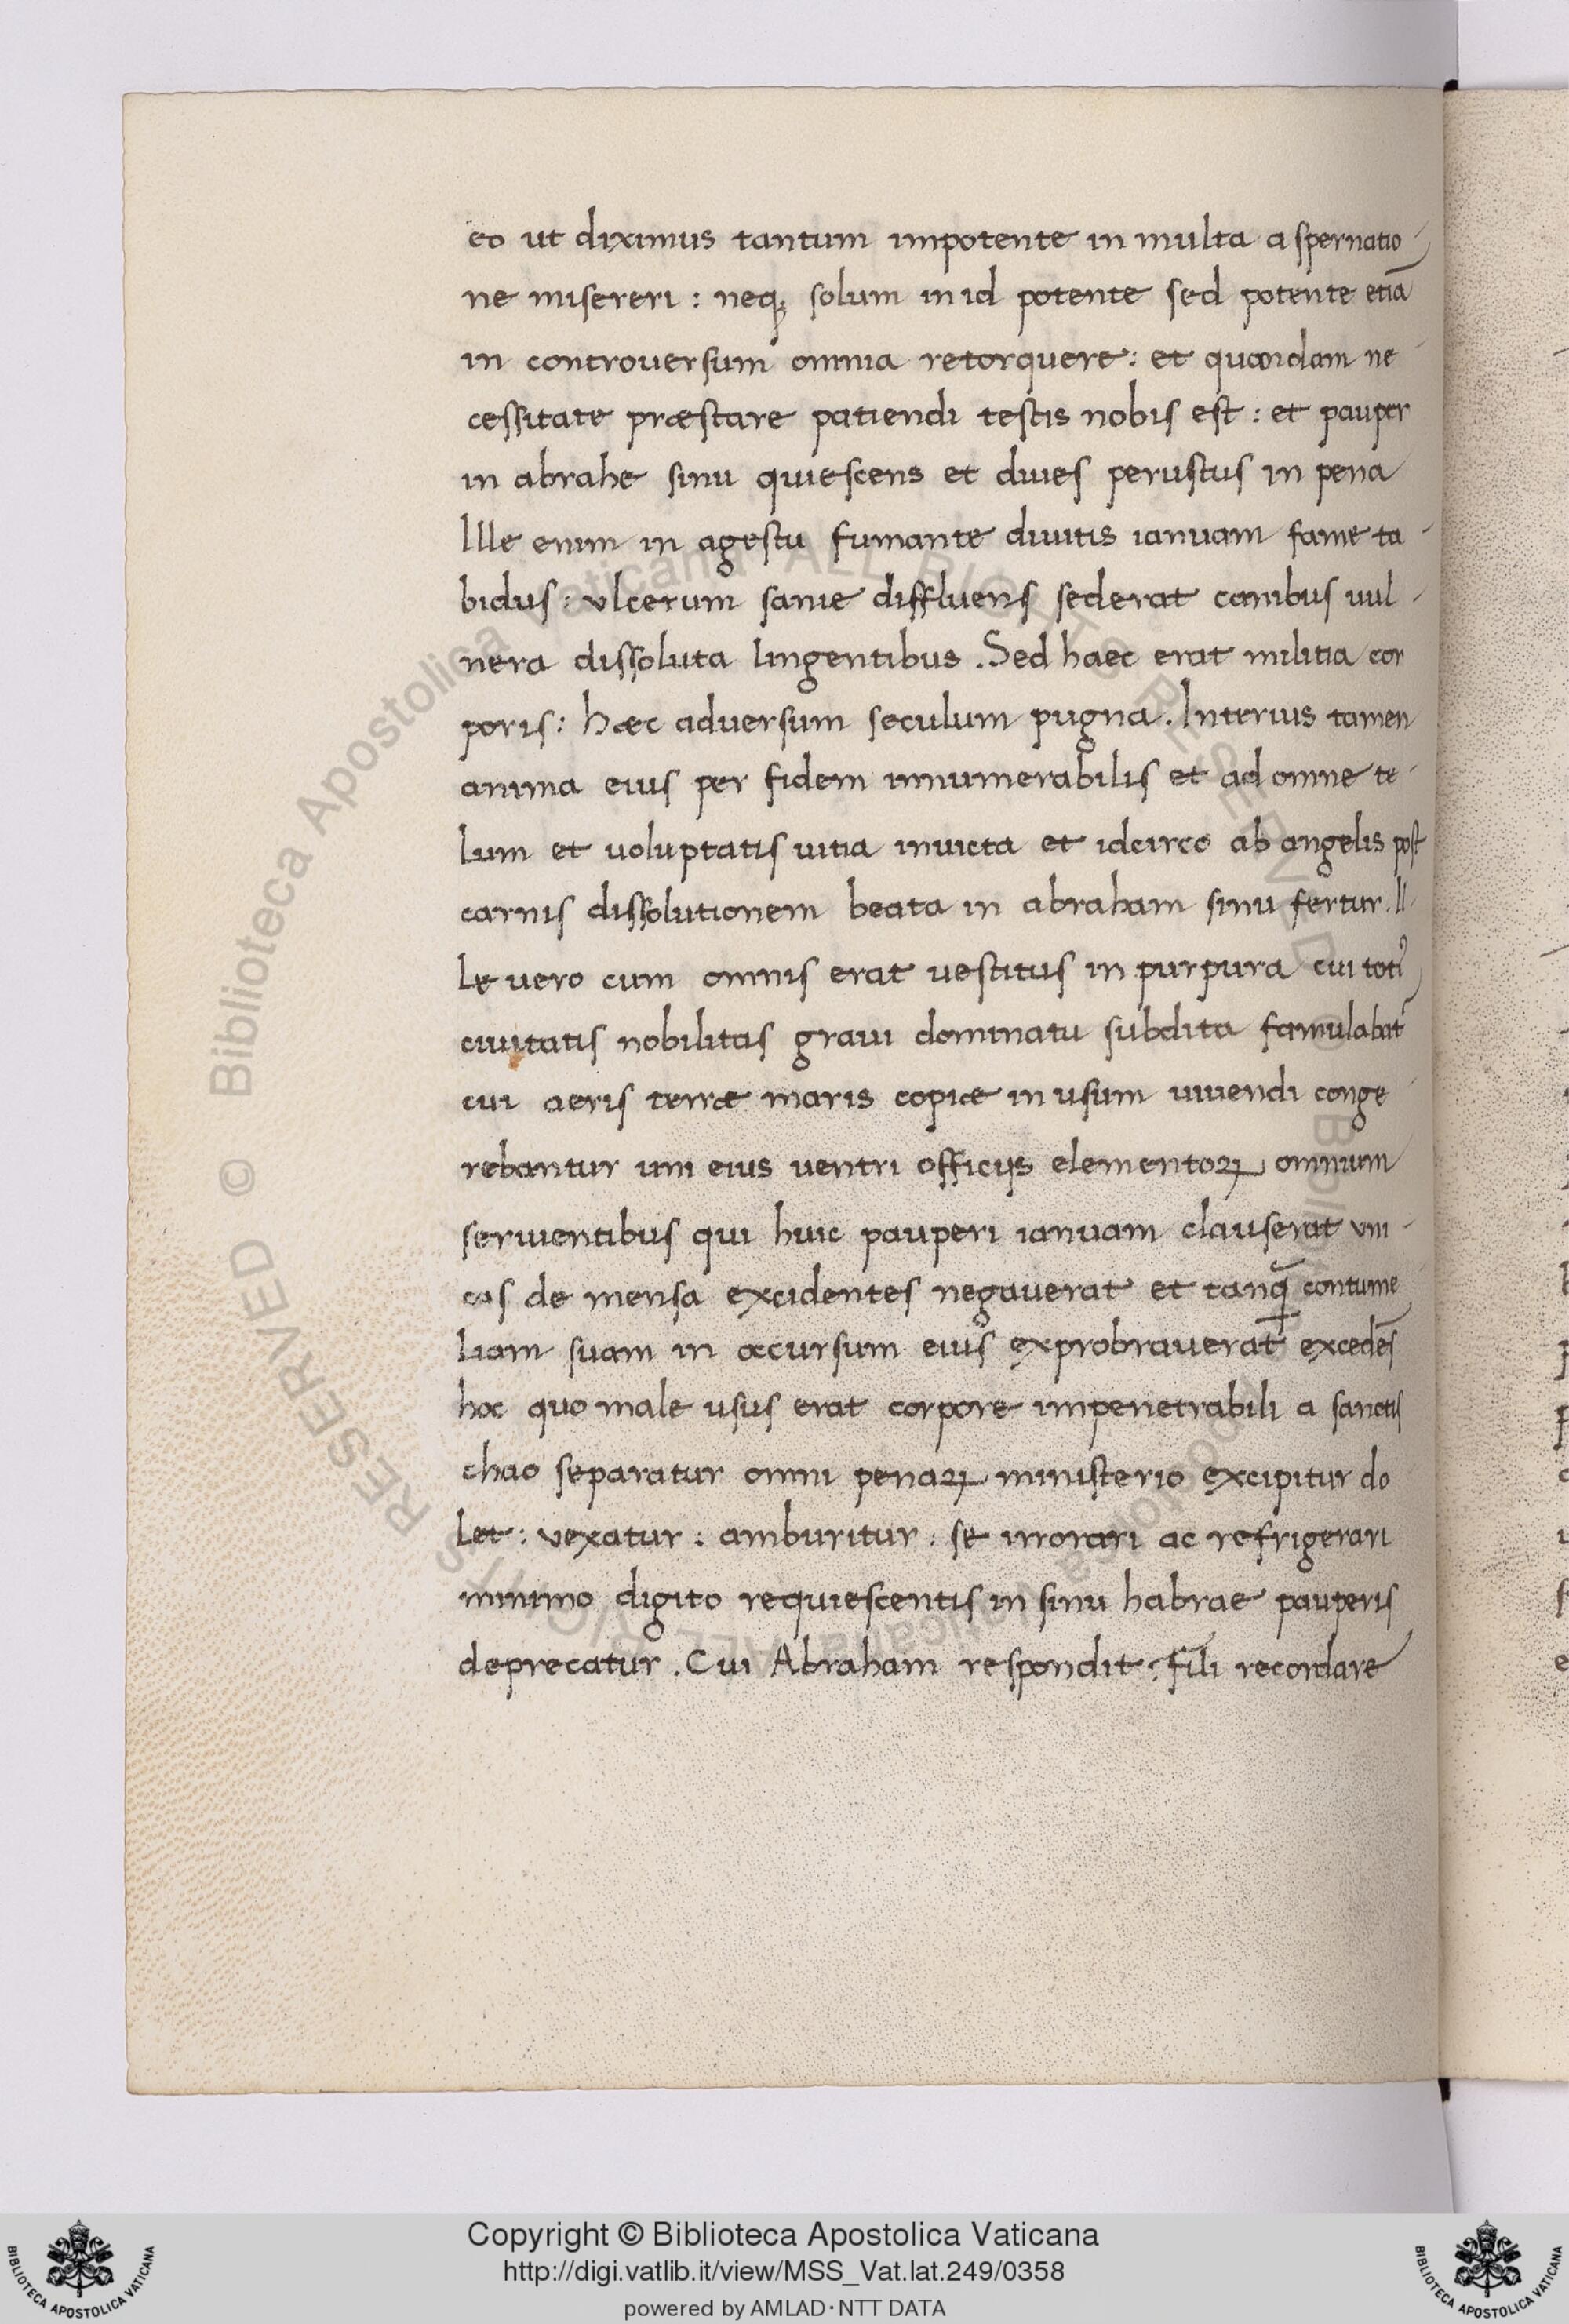 eo ut diximus tantum impotente in multa aspernatio
ne misereri : neq; solum in id potente sed potente etiã
in controversum omnia retorquere : et quandam ne
cessitate præstare patiendi testis nobis est : et pauper
in abrahe sinu quiescens et dives perustus in pena
Ille enim in agestu fumante divitis ianuam fame ta
bidus : vlcerum sanie diffluens sederat canibus vul
nera dissoluta lingentibus . Sed haec erat militia cor
poris : hæc adversum seculum pugna . Interius tamen
anima eius per fidem innumerabilis et ad omne te
lum et voluptatis vitia invicta et idcirco ab angelis post
carnis dissolutionem beata in abraham sinu fertur . Il
le vero cum omnis erat vestitus in purpura cui toti'
civitatis nobilitas gravi dominatu subdita famulabat
cui aeris terræ maris copiæ in usum vivendi conge
rebantur uni eius ventri officijs elementoꝝ omnium
servientibus qui huic pauperi ianuam clauserat vni
cas de mensa excidentes negaverat et tanq̃ contume
liam suam in occursum eius exprobraverat excedẽs
hoc quo male usus erat corpore impenetrabili a sanctis
chao separatur omni penaꝝ ministerio excipitur do
let : vexatur : amburitur : se irrorari ac refrigerari
minimo digito requiescentis in sinu habrae pauperis
deprecatur . Cui Abraham respondit : fili recordare
Copyright © Biblioteca Apostolica Vaticana
http://digi.vatlib.it/view/MSS_Vat.lat.249/0358
powered by AMLAD·NTT DATA
BIBLIOTECA APOSTOLICA VATICANA
BIBLIOTECA APOSTOLICA VATICANA
© Biblioteca Apostolica Vaticana ALL RIGHTS RESERVED © Biblioteca Apostolica Vaticana ALL RIGHTS RESERVED